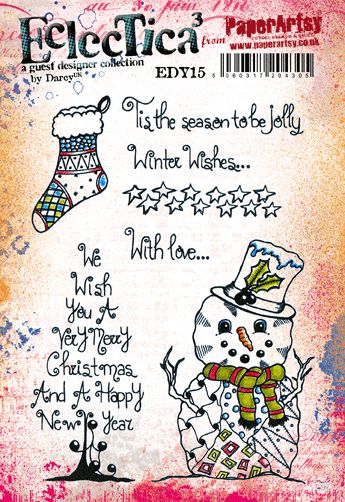 EclecTica³
a guest designer collection
by Darcy UK
from PaperArtsy
www.paperartsy.co.uk
EDY15
5 060317 204305
'Tis the season to be jolly
Winter Wishes...
With love...
We
Wish
You A
Very Merry
Christmas
And A Happy
New Year